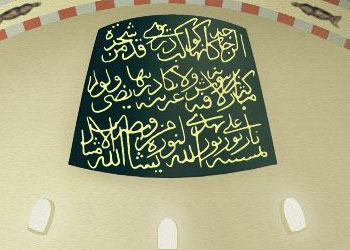 الزجاجة كأنها كوكب دري يوقد من شجرة
مباركة زيتونة لا شرقية ولا غربية يكاد زيتها يضيء ولو
لم تمسسه نار نور على نور يهدي الله لنوره من يشاء ويضرب الله الأمثال